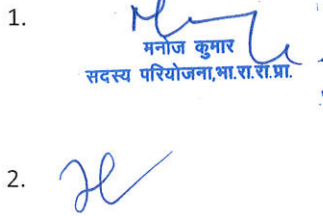 1.
मनोज कुमार
सदस्य परियोजना,भा.रा.रा.प्रा.
2.